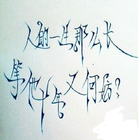 人的一生那么长
等他十年又何妨?